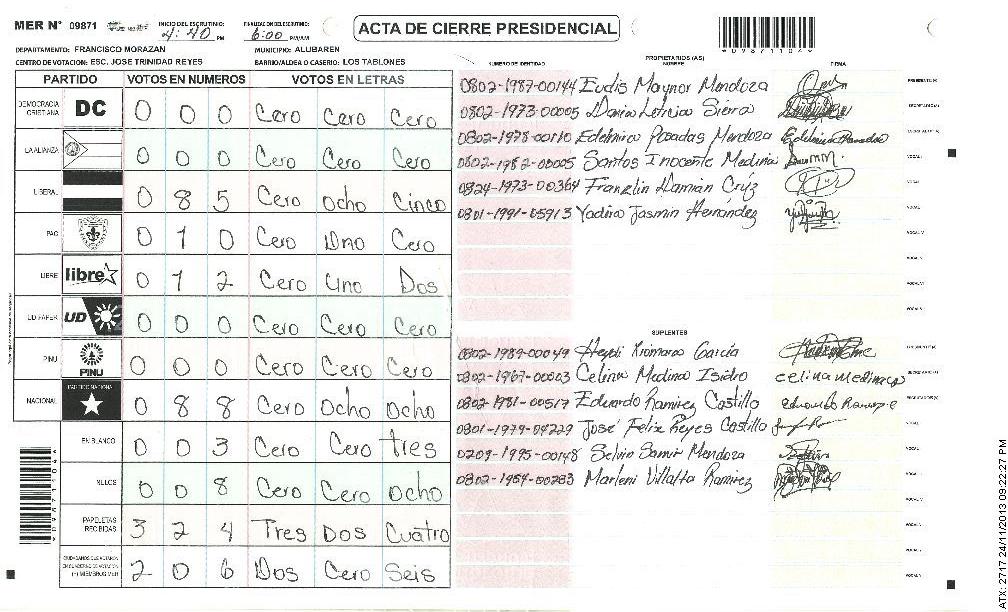 MER N° 09871
INICIO DEL ESCRUTINIO: 4:40 PM
FINALIZACION DEL ESCRUTINIO: 6:00 PM/AM
ACTA DE CIERRE PRESIDENCIAL
DEPARTAMENTO: FRANCISCO MORAZAN
MUNICIPIO: ALUBAREN
CENTRO DE VOTACION: ESC. JOSE TRINIDAD REYES
BARRIO/ALDEA O CASERIO: LOS TABLONES
PARTIDO VOTOS EN NUMEROS VOTOS EN LETRAS
DEMOCRACIA CRISTIANA DC 0 0 0 Cero Cero Cero
LA ALIANZA 0 0 0 Cero Cero Cero
LIBERAL 0 8 5 Cero Ocho Cinco
PAC 0 1 0 Cero Uno Cero
LIBRE libre 0 1 2 Cero Uno Dos
UD FAPER UD 0 0 0 Cero Cero Cero
PINU PINU 0 0 0 Cero Cero Cero
NACIONAL PARTIDO NACIONAL 0 8 8 Cero Ocho Ocho
EN BLANCO 0 0 3 Cero Cero Tres
NULOS 0 0 8 Cero Cero Ocho
PAPELETAS RECIBIDAS 3 2 4 Tres Dos Cuatro
CIUDADANOS QUE VOTARON EN CUADERNO DE VOTACION (+) MIEMBROS MER 2 0 6 Dos Cero Seis
09871104
PROPIETARIOS (AS)
NUMERO DE IDENTIDAD NOMBRE FIRMA
0802-1987-00144 Eudis Maynor Mendoza
0802-1973-00005 Sierra
0802-1978-00110 Edelmira Posadas Mendoza
0802-1982-00005 Santos Inocente Medina
0824-1973-00364 Franzlin Damián Crúz
0801-1991-05913 Yadira Jasmin Hernández
SUPLENTES
0802-1989-00049 Heydi Xiomara García
0802-1967-00003 Celina Medina Isidro celina medina
0802-1981-00517 Eduardo Ramirez Castillo
0801-1979-04229 José Felix Reyes Castillo
0209-1995-00148 Selvin Samir Mendoza
0802-1984-00283 Marleni Villalta Ramirez
09871104
ATX: 2717 24/11/2013 09:22:27 PM